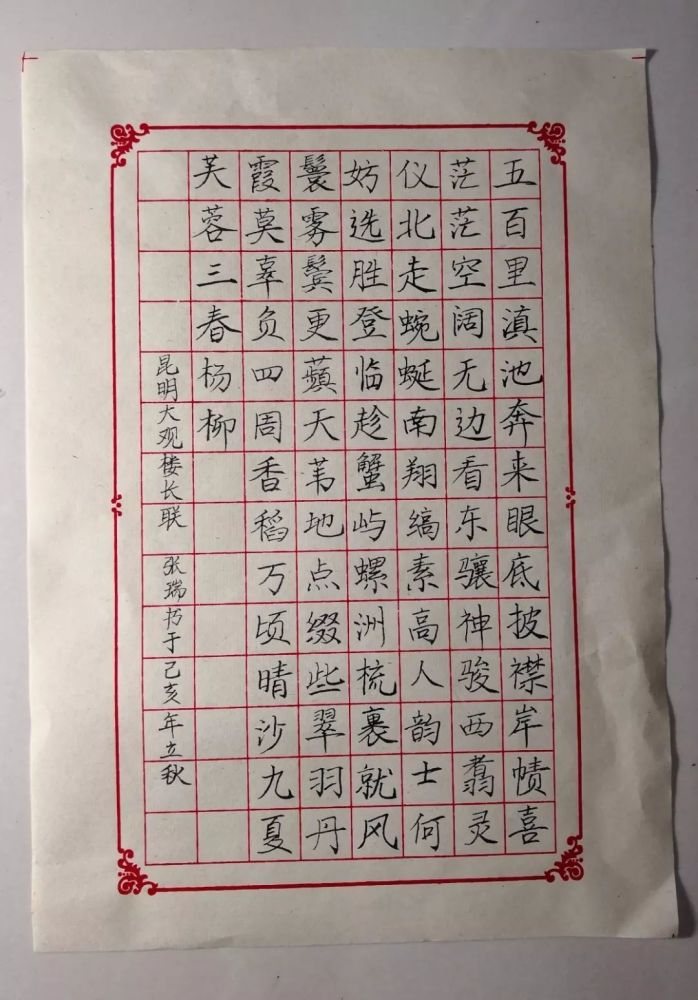 五百里滇池奔来眼底披襟岸帻喜
茫茫空阔无边看东骧神骏西翥灵
仪北走蜿蜒南翔缟素高人韵士何
妨选胜登临趁蟹屿螺洲梳裹就风
鬟雾鬓更蘋天苇地点缀些翠羽丹
霞莫辜负四周香稻万顷晴沙九夏
芙蓉三春杨柳
昆明大观楼长联 张瑞书于己亥年立秋